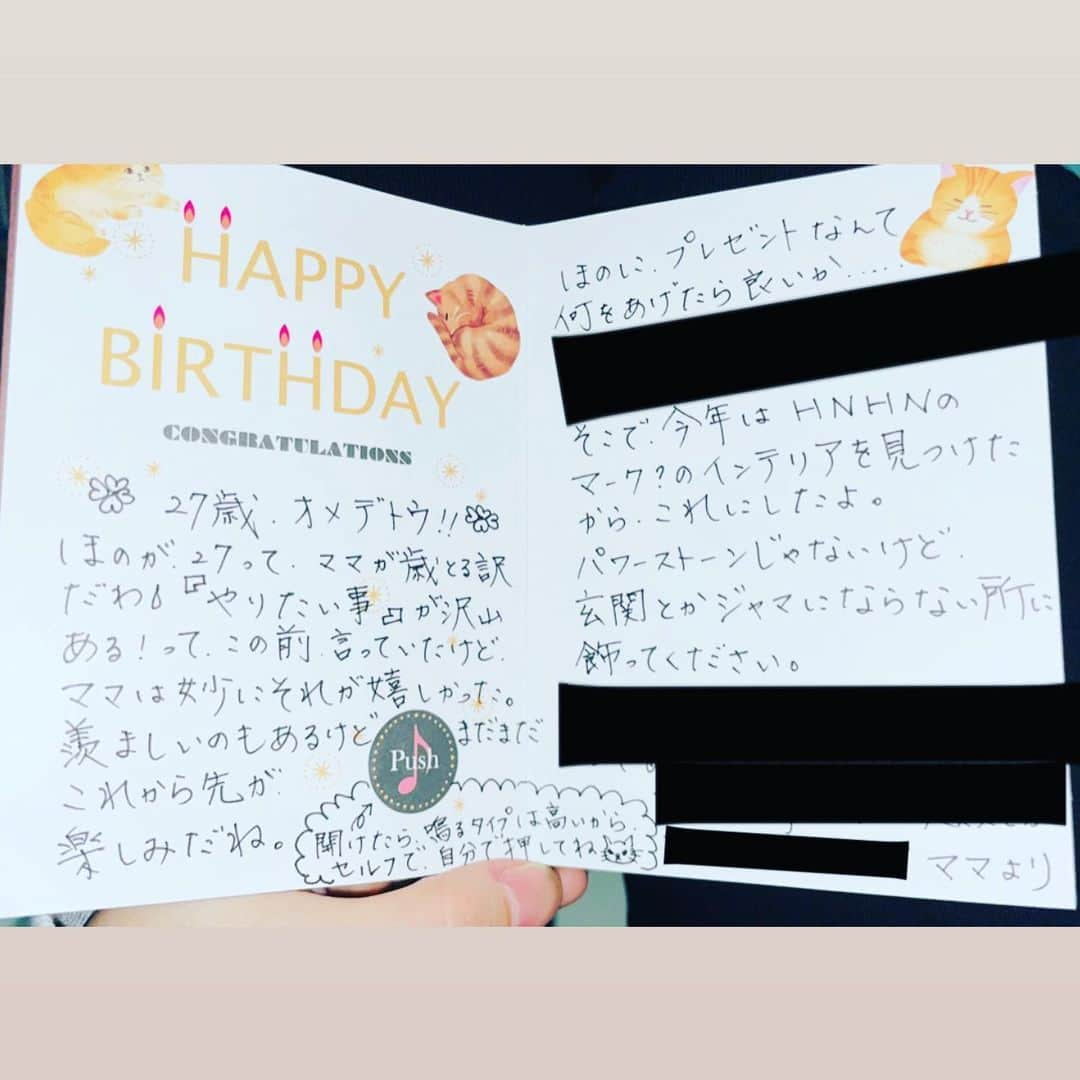 HAPPY
BIRTHDAY
CONGRATULATIONS
27歳、オメデトウ!!
ほのが、27って、ママが歳とる訳
だわ『やりたい事』が沢山
ある!って、この前、言っていたけど、
ママは妙にそれが嬉しかった。
羨ましいのもあるけど まだまだ
これから先が、
楽しみだね。
Push
開けたら、鳴るタイプは高いから、
セルフで、自分で押してね
ほのに、プレゼントなんて
何をあげたら良いか.....
そこで、今年は HNHNの
マーク?のインテリアを見つけた
から、これにしたよ。
パワーストーンじゃないけど、
玄関とかジャマにならない所に
飾ってください。
ママより